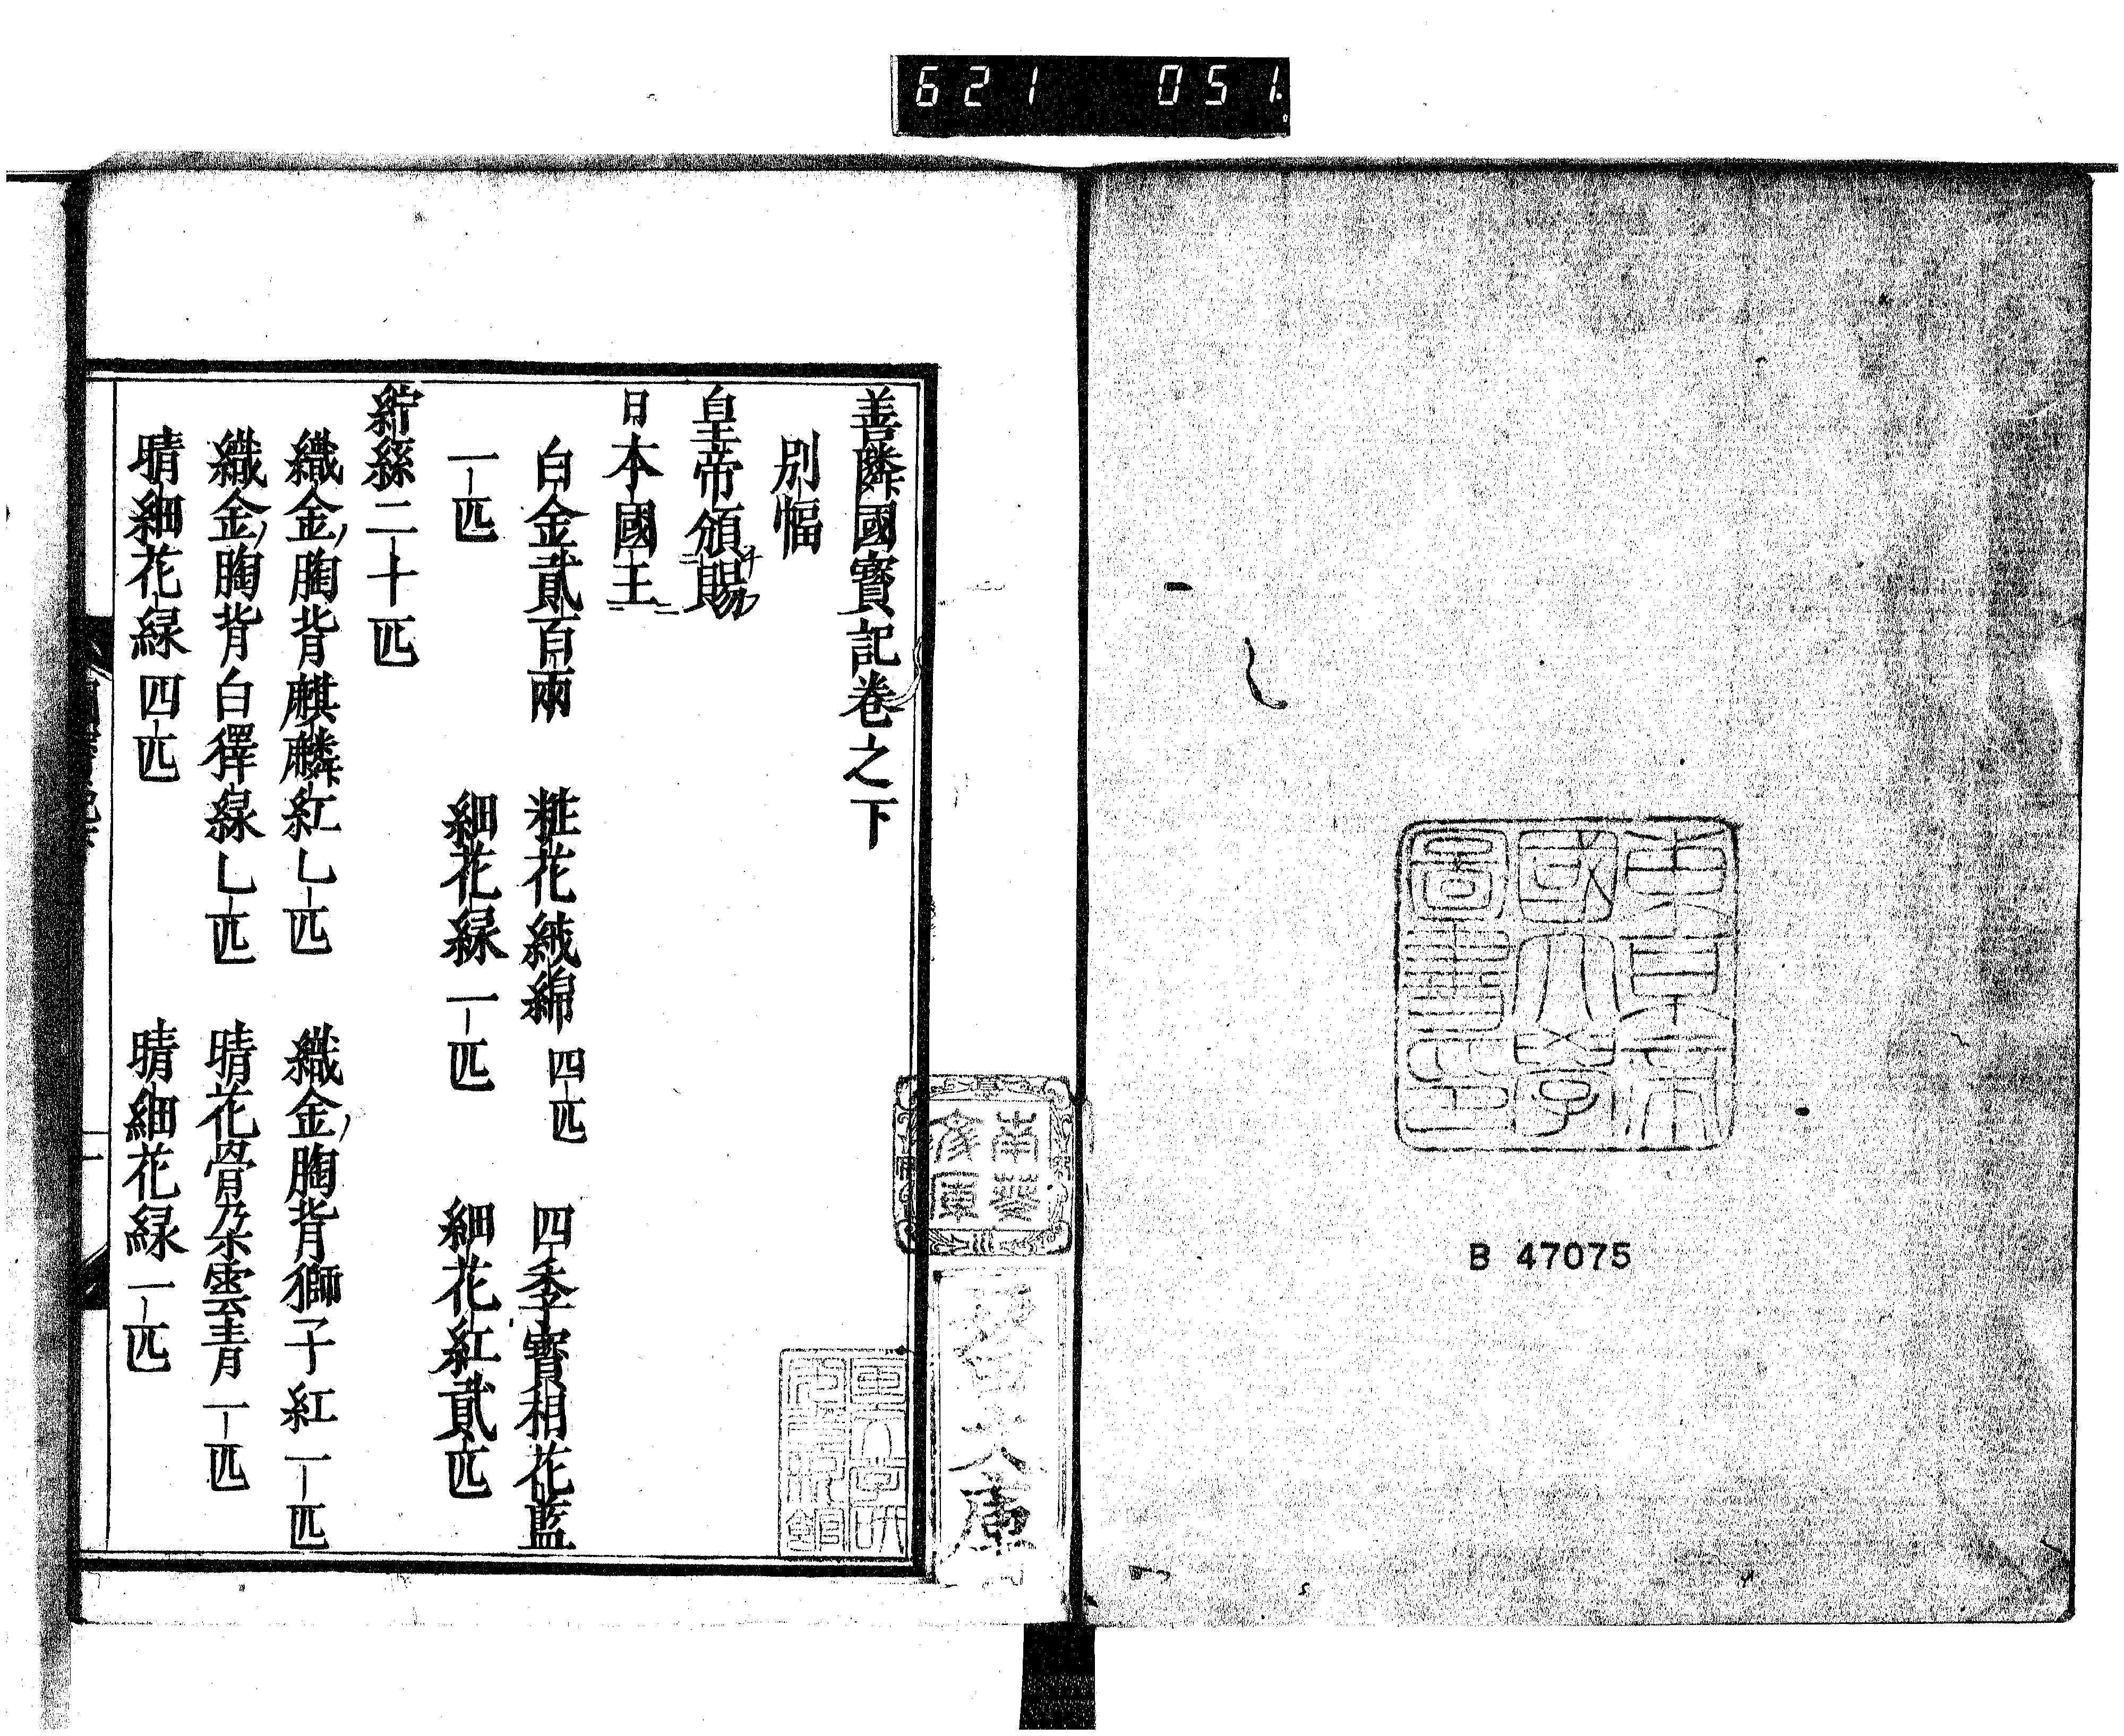 621 051
東京帝
國大學
圖書之印
B 47075
南葵
文庫
善隣國寳記卷之下
別幅
皇帝頒賜
日本國王
白金貳百兩 粧花絨綿 四匹 四季寳相花藍
一匹 細花緑一匹 細花紅貳匹
紵絲二十匹
織金胸背麒麟紅乚匹 織金胸背獅子紅一匹
織金胸背白㹮緑乚匹 晴花骨朶雲青一匹
晴細花緑四匹 晴細花緑一匹